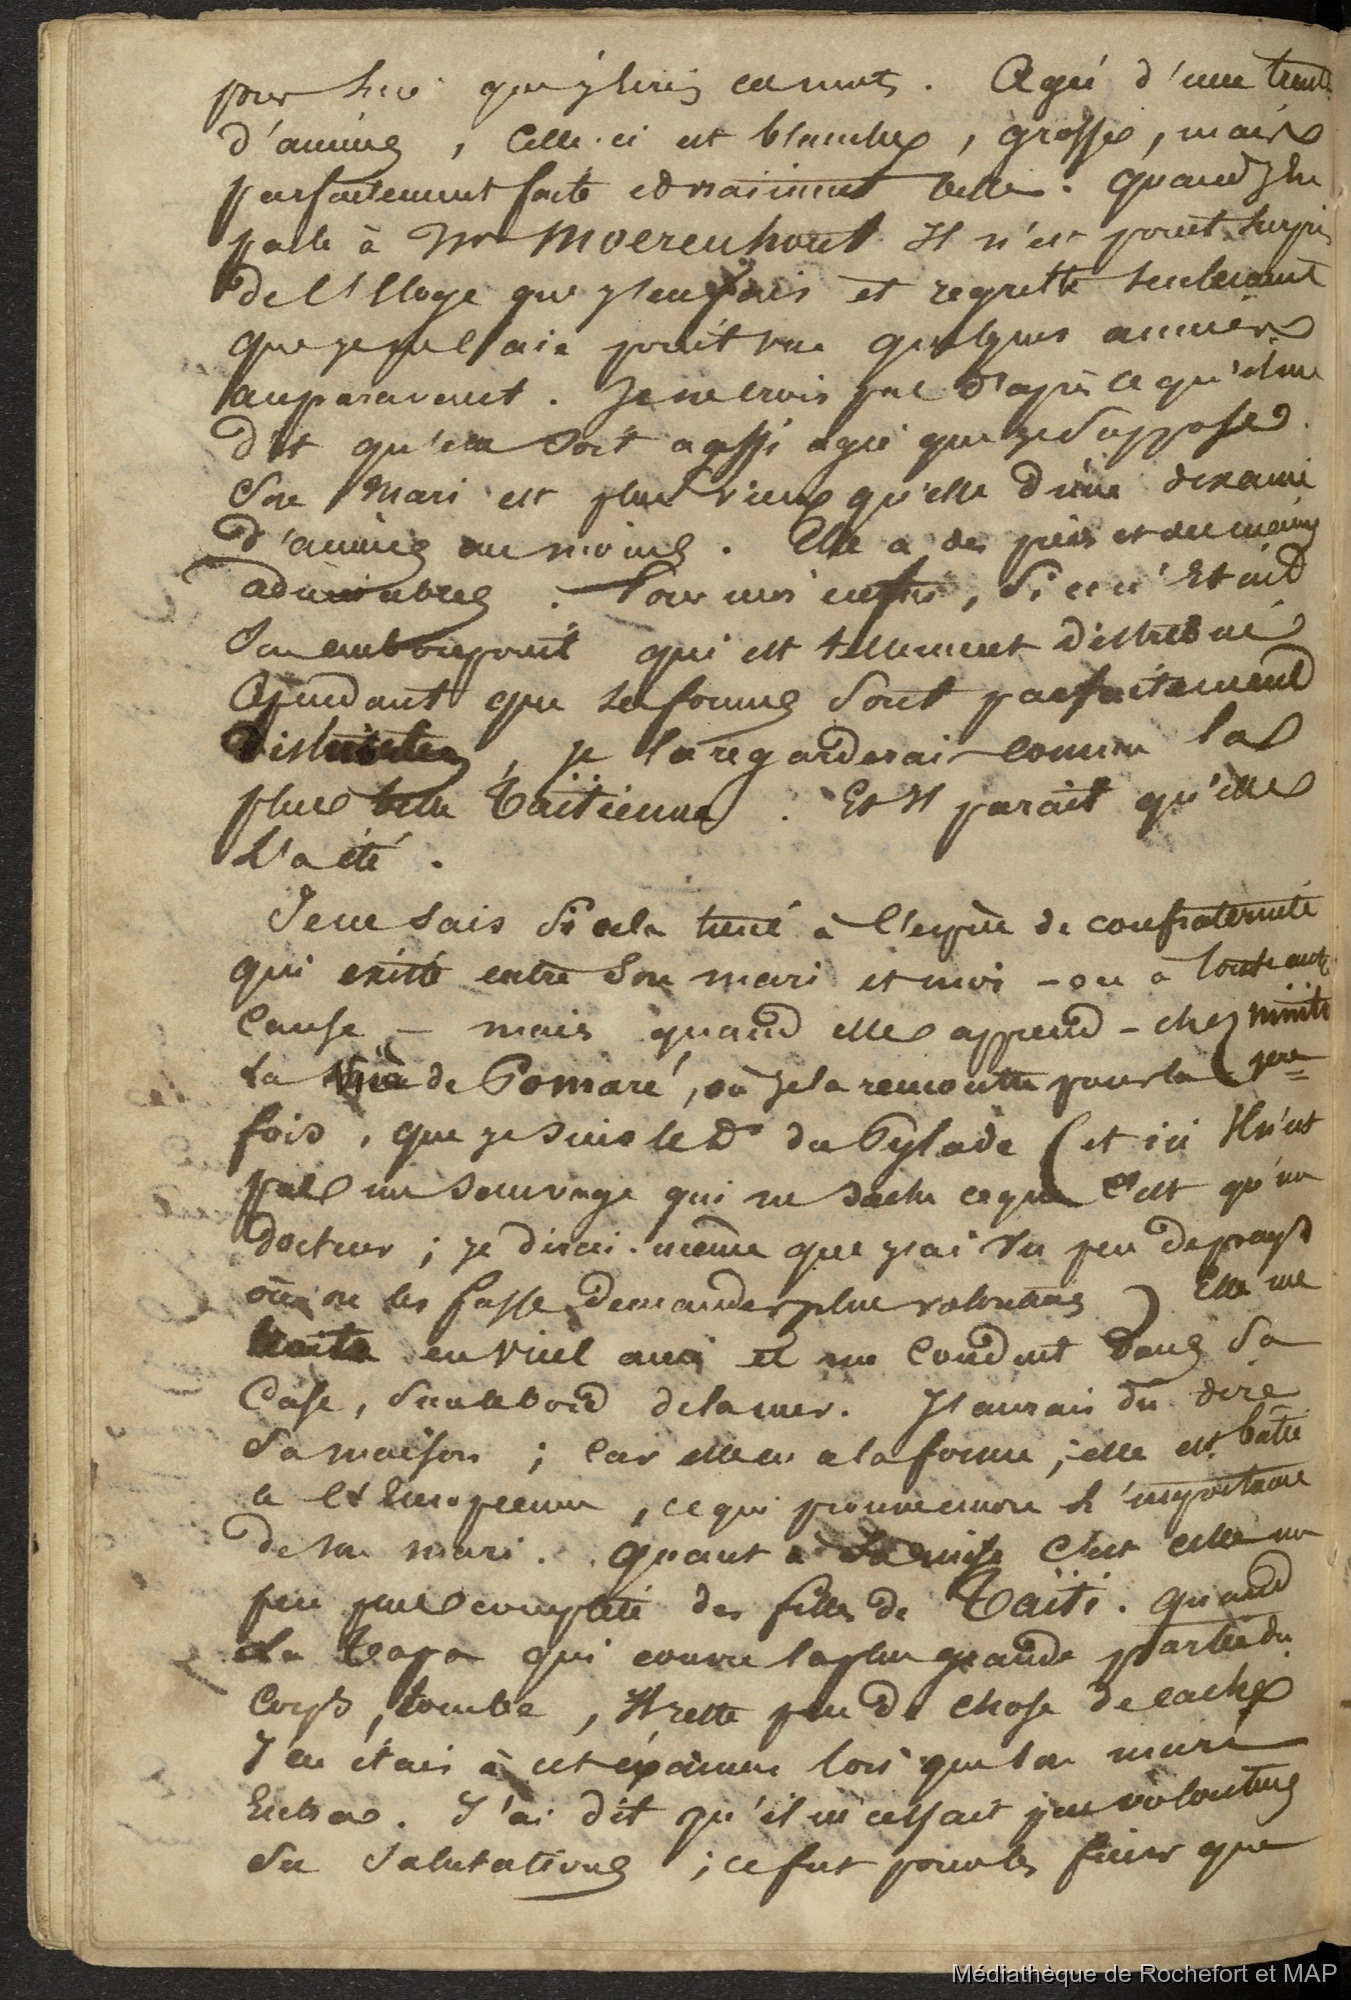 pour lui que j'écris ces mots. Agée d'une trent.
d'années, celle-ci est blanche, grosse, mais
parfaitement faite et vraiment belle. Quand j'en
parle à Mr Moerenhout Il n'est point surpris
de l'Eloge que j'en fais et regrette seulement
que je ne l'aie point vue quelques années
auparavant. Je ne crois pas d'après ce qu'il me
dit qu'elle soit aussi agée que je suppose.
Son mari est plus vieux qu'elle d'une dixaine
d'années au moins. Elle a des pieds et des mains
admirables. Pour moi enfin, si ce n'Etait
Son embonpoint qui est tellement distribué
Cependant que ses formes sont parfaitement
distinctes, je la regarderais comme la
plus belle Taïtienne. Et Il parait qu'elle
l'a été.
Je ne sais si cela tient à l'espèce de confraternité
qui existe entre son mari et moi - ou à toute aut.
Cause - mais quand elle apprend - chez
la de Pomaré, où je la rencontre pour la 1ere
fois, que je suis le Dr du Pylade (et ici Il n'est
pas un sauvage qui ne sache ce que c'est qu'un
docteur; je dirai même que j'ai vu peu de pays
où on les fasse demander plus volontiers) Elle me
traite en vieil ami et me conduit dans sa
Case, sur le bord de la mer. J'aurais dû dire
sa maison; car elle en a la forme; elle est bâtie
a l'Européenne, ce qui prouve encore l'importance
de son mari. Quant à sa mise c'est celle un
peu plus complète des filles de Taïti. Quand
la Tapa qui couvre la plus grande partie du
corps, tombe, Il reste peu de chose de caché
J'en étais à cet examen lorsque son mari
Entra. J'ai dit qu'il m'adressait peu volontiers
ses salutations; ce fut pour les finir que